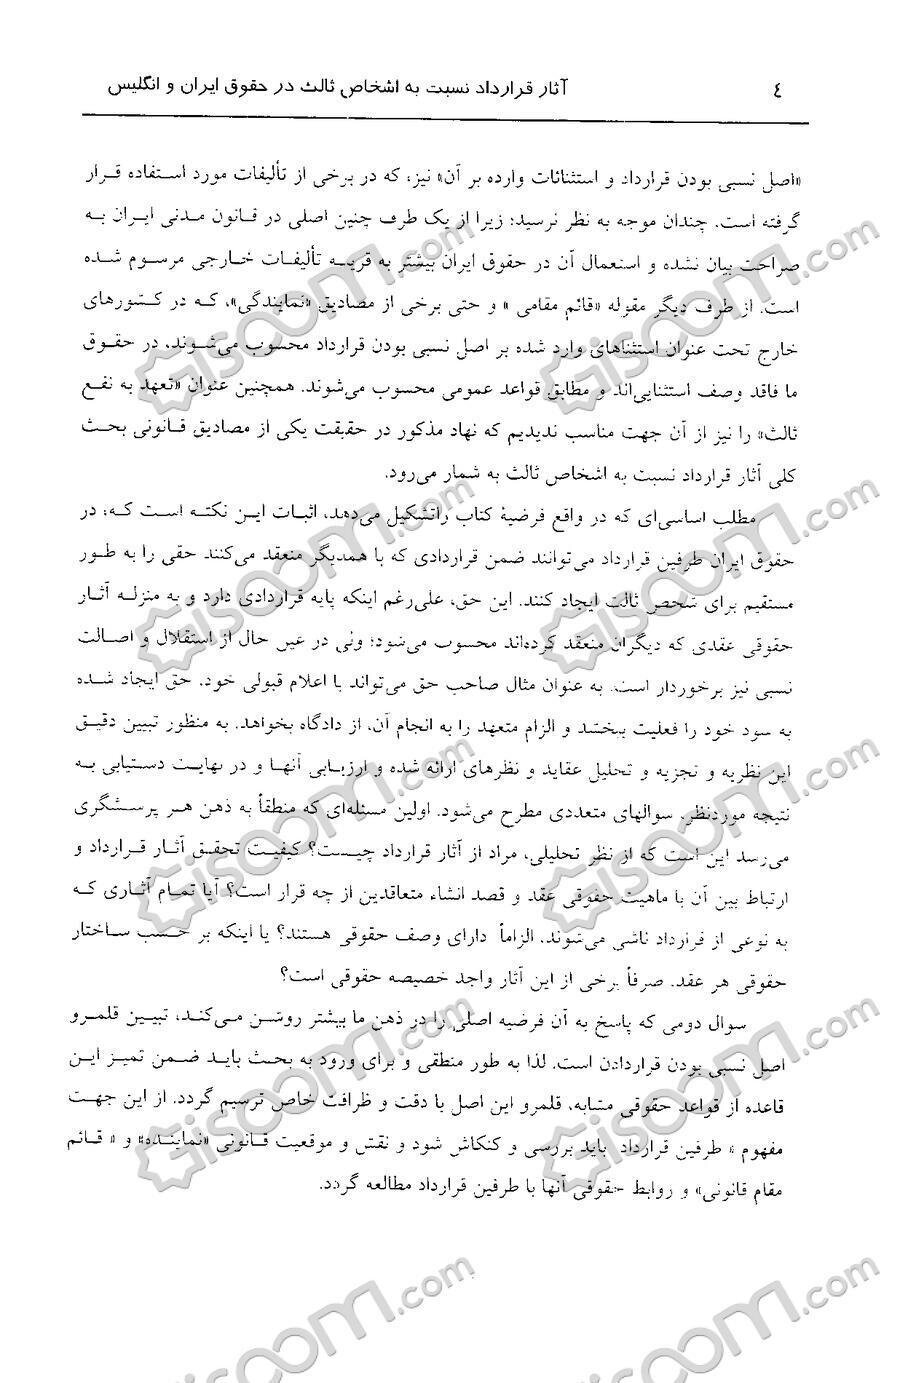 ٤ آثار قرارداد نسبت به اشخاص ثالث در حقوق ایران و انگلیس
«اصل نسبی بودن قرارداد و استثنائات وارده بر آن» نیز، که در برخی از تألیفات مورد استفاده قرار
گرفته است. چندان موجه به نظر نرسید؛ زیرا از یک طرف چنین اصلی در قانون مدنی ایران به
صراحت بیان نشده و استعمال آن در حقوق ایران بیشتر به قرینه تألیفات خارجی مرسوم شده
است. از طرف دیگر مقوله «قائم مقامی » و حتی برخی از مصادیق «نمایندگی»، که در کشورهای
خارج تحت عنوان استثناهای وارد شده بر اصل نسبی بودن قرارداد محسوب می‌شوند، در حقوق
ما فاقد وصف استثنایی‌اند و مطابق قواعد عمومی محسوب می‌شوند. همچنین عنوان «تعهد به نفع
ثالث» را نیز از آن جهت مناسب ندیدیم که نهاد مذکور در حقیقت یکی از مصادیق قانونی بحث
کلی آثار قرارداد نسبت به اشخاص ثالث به شمار می‌رود.
مطلب اساسی‌ای که در واقع فرضیهٔ کتاب راتشکیل می‌دهد، اثبات این نکته است که، در
حقوق ایران طرفین قرارداد می‌توانند ضمن قراردادی که با همدیگر منعقد می‌کنند حقی را به طور
مستقیم برای شخص ثالث ایجاد کنند. این حق، علی‌رغم اینکه پایه قراردادی دارد و به منزله آثار
حقوقی عقدی که دیگران منعقد کرده‌اند محسوب می‌شود؛ ولی در عین حال از استقلال و اصالت
نسبی نیز برخوردار است. به عنوان مثال صاحب حق می‌تواند با اعلام قبولی خود. حق ایجاد شده
به سود خود را فعلیت ببخشد و الزام متعهد را به انجام آن، از دادگاه بخواهد. به منظور تبیین دقیق
این نظریه و تجزیه و تحلیل عقاید و نظرهای ارائه شده و ارزیابی آنها و در نهایت دستیابی به
نتیجه موردنظر، سوالهای متعددی مطرح می‌شود. اولین مسئله‌ای که منطقاً به ذهن هر پرسشگری
می‌رسد این است که از نظر تحلیلی، مراد از آثار قرارداد چیست؟ کیفیت تحقیق آثار قرارداد و
ارتباط بین آن با ماهیت حقوقی عقد و قصد انشاء متعاقدین از چه قرار است؟ آیا تمام آثاری که
به نوعی از قرارداد ناشی می‌شوند. الزاماً دارای وصف حقوقی هستند؟ یا اینکه بر حسب ساختار
حقوقی هر عقد. صرفاً برخی از این آثار واجد خصیصه حقوقی است؟
سوال دومی که پاسخ به آن فرضیه اصلی را در ذهن ما بیشتر روشن می‌کند، تبیین قلمرو
اصل نسبی بودن قراردادن است. لذا به طور منطقی و برای ورود به بحث باید ضمن تمیز این
قاعده از قواعد حقوقی مشابه، قلمرو این اصل با دقت و ظرافت خاص ترسیم گردد. از این جهت
مفهوم « طرفین قرارداد باید بررسی و کنکاش شود و نقش و موقعیت قانونی «نماینده» و « قائم
مقام قانونی» و روابط حقوقی آنها با طرفین قرارداد مطالعه گردد.
Gisoom.com
Gisoom.com
Gisoom.com
Gisoom.com
Gisoom.com
Gisoom.com
Gisoom.com
Gisoom.com
Gisoom.com
Gisoom.com